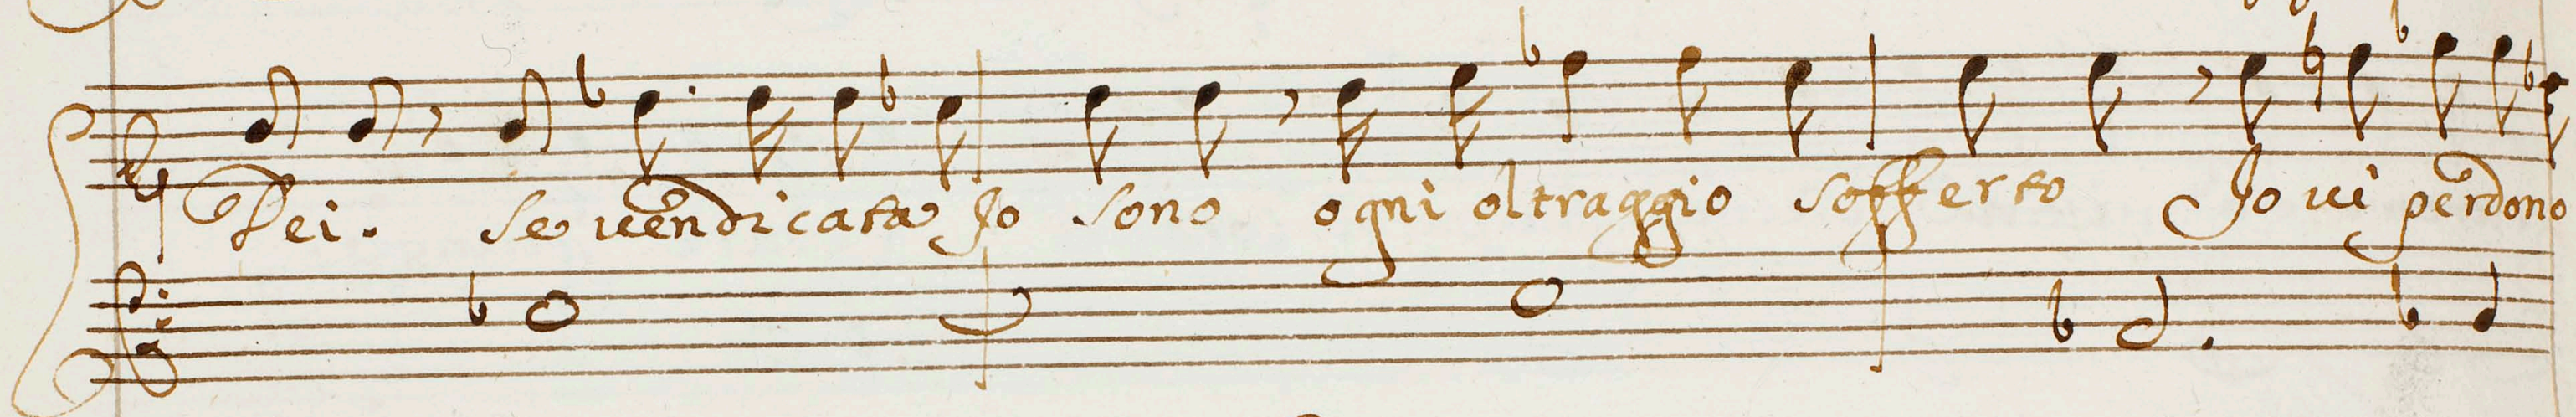 Dei. Se vendicata Jo sono ogni oltraggio sofferto Jo vi perdono